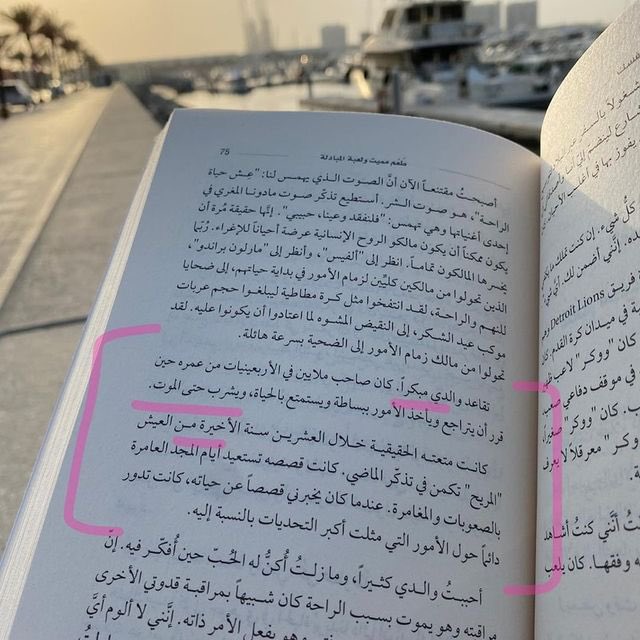 75 ملغم مميت ولعبة المبادلة
أصبحتُ مقتنعاً الآن أنَّ الصوت الذي يهمس لنا: "عش حياة
الراحة"، هو صوت الشر. أستطيع تذكّر صوت مادونا المغري في
إحدى أغنياتها وهي تهمس: "فلنفقد وعينا، حبيبي". إنَّها حقيقة مُرة أن
يكون ممكناً أن يكون مالكو الروح الإنسانية عرضة أحياناً للإغراء. رُبّما
يخسرها المالكون تماماً. انظر إلى "ألفيس"، وانظر إلى "مارلون براندو"،
الذين تحولوا من مالكين كليِّين لزمام الأمور في بداية حياتهم، إلى ضحايا
للنهم والراحة، لقد انتفخوا مثل كرة مطاطية ليبلغوا حجم عربات
موكب عيد الشكر، إلى النقيض المشوه لما اعتادوا أن يكونوا عليه. لقد
تحولوا من مالك زمام الأمور إلى الضحية بسرعة هائلة.
تقاعد والدي مبكراً. كان صاحب ملايين في الأربعينيات من عمره حين
قرر أن يتراجع ويأخذ الأمور ببساطة ويستمتع بالحياة، ويشرب حتى الموت.
كانت متعته الحقيقية خلال العشرين سنة الأخيرة من العيش
"المريح" تكمن في تذكّر الماضي. كانت قصصه تستعيد أيام المجد العامرة
بالصعوبات والمغامرة. عندما كان يخبرني قصصاً عن حياته، كانت تدور
دائماً حول الأمور التي مثلت أكبر التحديات بالنسبة إليه.
أحببتُ والدي كثيراً، وما زلتُ أُكنُّ له الحُبّ حين أُفكّر فيه. إنَّ
مراقبته وهو يموت بسبب الراحة كان شبيهاً بمراقبة قدوتي الأخرى
وهو يفعل الأمر ذاته. إنَّني لا ألوم أيَّ
كلُّ شيء. إن كنت تملك
إنَّني أضمن لك
فريق Detroit Lions
في ميدان كرة القدم.
كان "ووكر" لاعباً
في موقف دفاعي
كان "ووكر" صغيراً
"وكر" معرقلاً لا يعرف
أنَّني كنتُ أشاهد
وفقها. كان يلعب